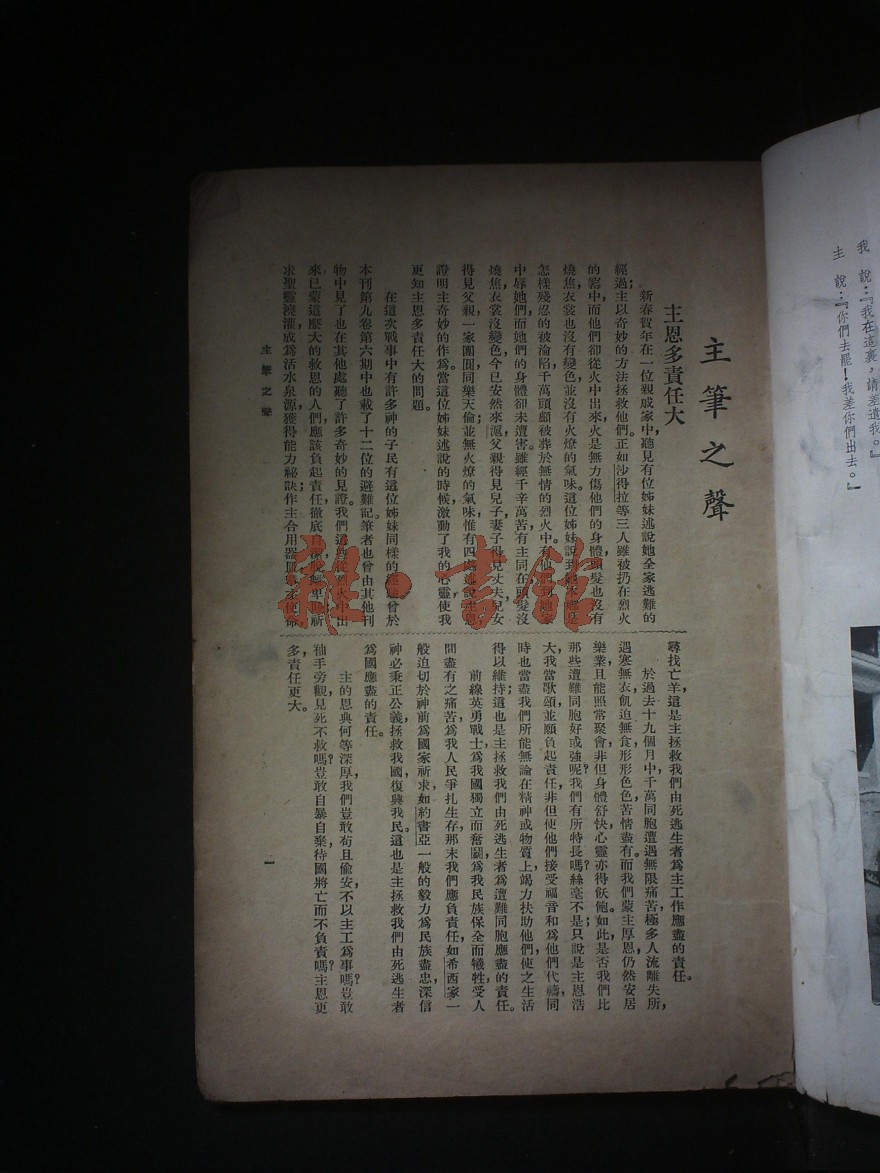 主筆之聲
主恩多責任大
新春賀年在一位親戚家中，聽見有位姊妹述說她全家逃難的
經過；主以奇妙的方法拯救他們。正如沙得拉等三人雖被扔在烈火
的窰中而他們卻從火中出來，火是無力傷他們的身體，頭髮也沒有
燒焦，衣裳也沒有變色，並沒有火燎的氣味。這位姊妹說到她
怎樣殘忍的被淪陷，千萬頭顱被葬於無情的烈火中，有
中辱她們，而她們的身體卻未遭害，雖經千辛萬苦有主同在，頭髮沒
燒焦，衣裳沒變色，今已安然來滬，父親得見兒子，妻子得見丈夫，兒女
得見父親，一家團圓，同樂天倫；並無火燎的氣味，惟有四處述說主恩，
證明主奇妙的作爲。當這位姊妹述說的時候，激動了我的心靈，使我
更知主恩多責任大的問題。
在這次戰事中有許多神的子民有這位姊妹同樣的經驗，曾於
本刊第九卷第六期中也載了十二位的避難記。筆者也曾由其他刊
物中見了也在其他處聽了許多奇妙的見證。我們這些從烈火中出
來已蒙這麼大的救恩的人們，應該負起責任，徹底自潔，脫離卑下，祈
求聖靈澆灌，成爲活水泉源，獲得能力祕訣；作主合用器皿，
尋找亡羊，這是主拯救我們由死逃生者爲主工作應盡的責任。
於過去十九個月中，千萬同胞遭遇無限痛苦，極多人流離失所，
遇寒無衣，飢迫無食，形形色色，苦情盡有。而我們蒙主厚恩仍然安居
樂業，且能照常聚會，非但身體舒快，心靈亦得飫飽。如此，是否我們比
那些遭難同胞好或強呢？我們有所特長嗎？絲毫不是；只說是主恩浩
大，我當歌頌並願負起責任，非但使他們接受福音和爲他們代禱，同
時也當盡我們所能，無論在精神或物質上，竭力扶助他們，使之生活
得以維持；這也是主拯救我們由死逃生者爲遭難同胞應盡的責任。
前線英勇戰士，爲我國獨立而奮鬬，爲我民族保全而犧牲，受人
間盡有之痛苦，爲我人民爭扎生存，那末我們應負責任，如希西家一
般迫切於神前爲國家祈求，如約書亞一般的毅力爲民族盡忠，深信
神必秉正公義，拯救我國，復興我民。這也是主拯救我們由死逃生者
爲國應盡的責任。
主的恩典何等深厚，我們豈敢苟且偷安，不以主工爲事嗎？豈敢
袖手旁觀，見死不救嗎？豈敢自暴自棄，待國將亡而不負責嗎？主恩更
多責任更大。
主筆之聲
一
我 說：『我在這裏，請差遣我。』
主 說：『你們去罷！我差你們出去。』